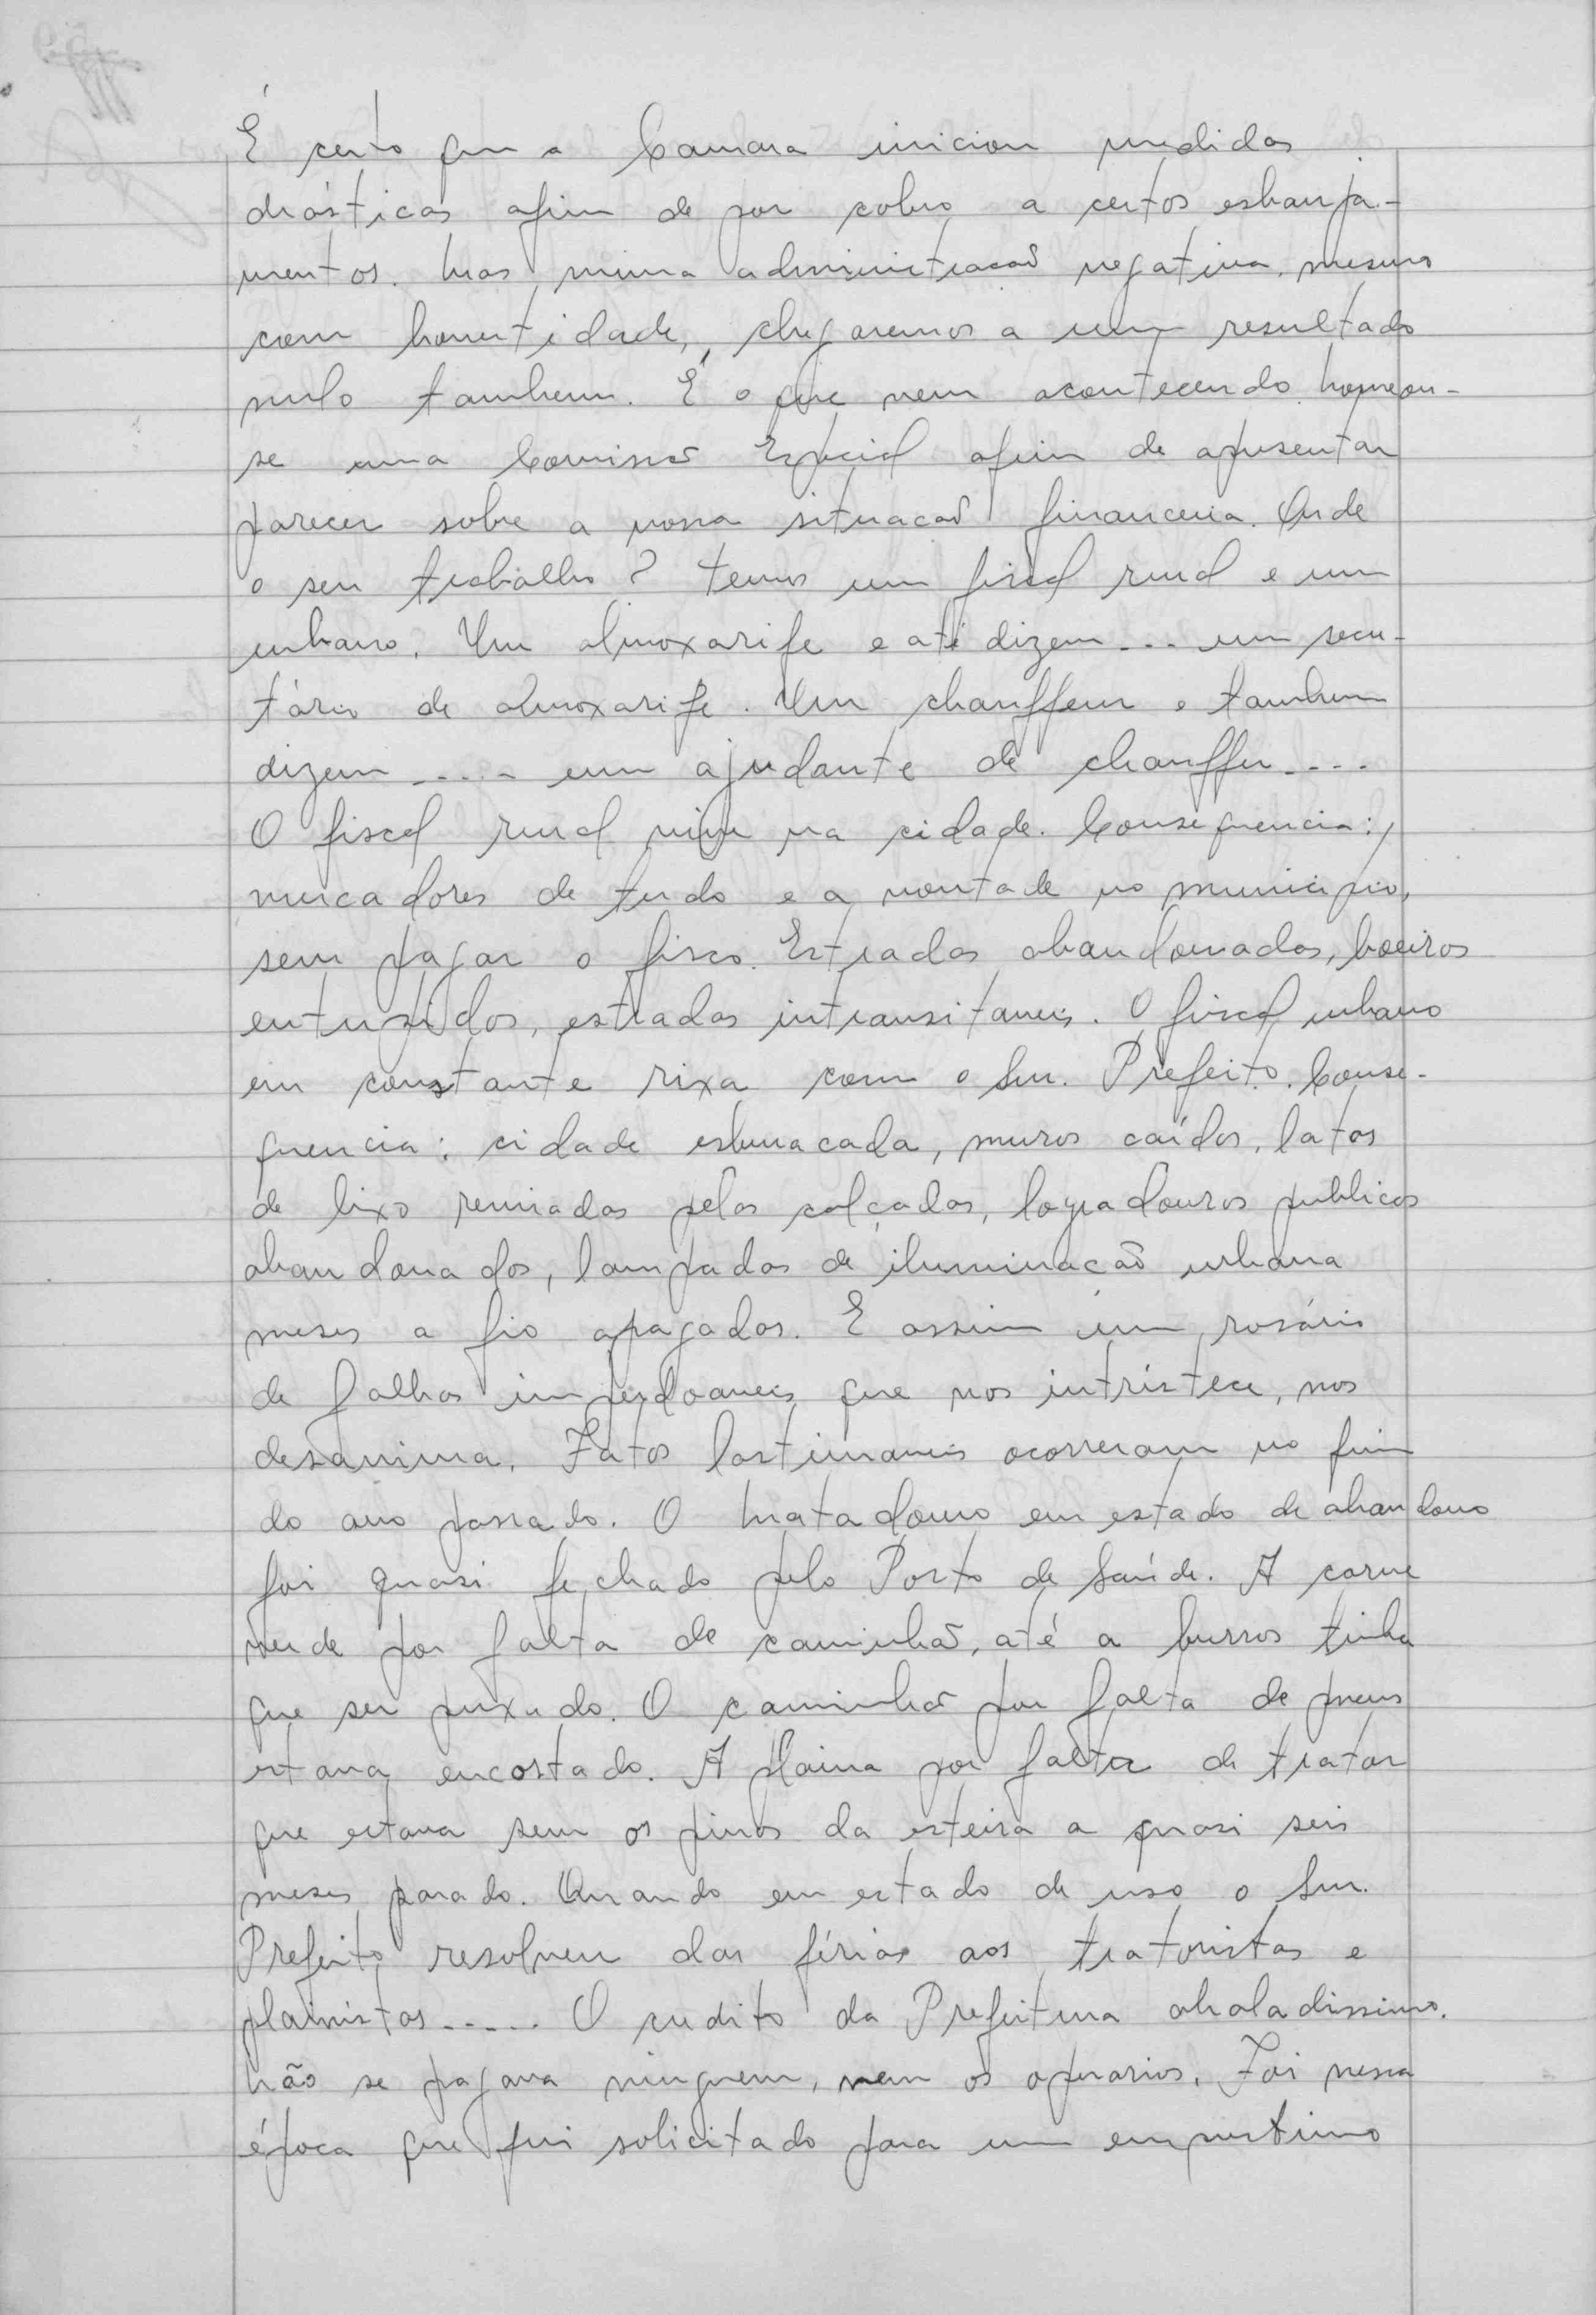 É certo que a Camara iniciou medidas
drásticas afim de por cobro a certos esbanja-
mentos. Mas numa administracaõ negativa, mesmo
com honestidade, chegaremos a um resultado
nulo tambem. É o que vem acontecendo. Nomeou-
se uma Comissaõ Especial afim de apresentar
parecer sobre a nossa situacaõ financeira. Onde
o seu trabalho? Temos um fiscal rural e um
urbano. Um almoxarife e até dizem ... um secre-
tário de almoxarife. Um chauffeur e tambem
dizem .... um ajudante de chauffer ....
O fiscal rural vive na cidade. Consequencia:
mercadores de tudo e a vontade no municipio,
sem pagar o fisco. Estradas abandonadas, boeiros
entupidos, estradas intransitaveis. O fiscal urbano
em constante rixa com o Snr. Prefeito. Conse-
quencia: cidade esburacada, muros caídos, latas
de lixo reviradas pelas calçadas, logradouros publicos
abandonados, lampadas de iluminacaõ urbana
meses a fio apagadas. E assim um rosário
de falhas imperdoaveis que nos intristece, nos
desanima. Fatos lastimaveis ocorreram no fim
do ano passado. O Matadouro em estado de abandono
foi quasi fechado pelo Posto de Saúde. A carne
verde por falta de caminhaõ, até a burros tinha
que ser puxado. O caminhaõ por falta de pneus
estava encostado. A plaina por falta de trator
que estava sem os pinos da esteira a quasi seis
meses parado. Quando em estado de uso o Snr.
Prefeito resolveu dar férias aos tratoristas e
plainistas ..... O credito da Prefeitura abaladissimo.
Não se pagava ninguem, nem os operarios. Foi nessa
época que fui solicitado para um emprestimo